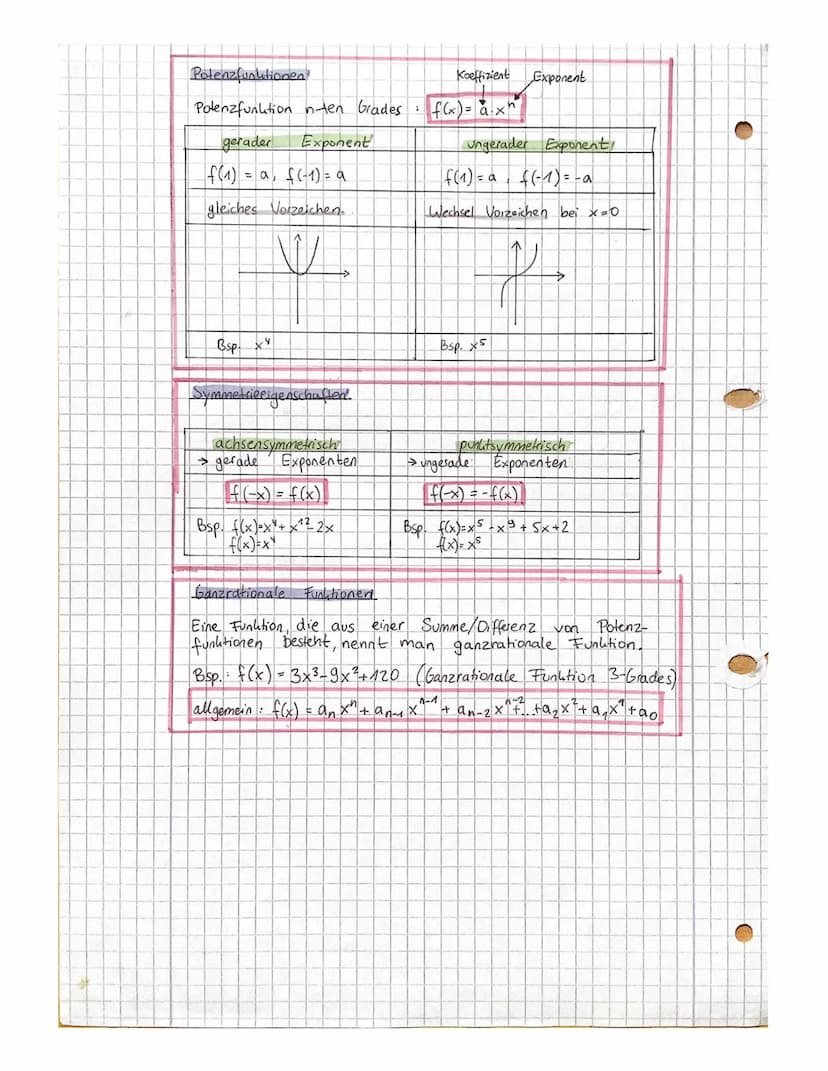 Potenzfunktionen
Koeffizient Exponent
Potenzfunktion n-ten Grades : f(x) = a·xⁿ
gerader Exponent
ungerader Exponent
f(1) = a, f(-1) = a
f(1) = a, f(-1) = -a
gleiches Vorzeichen.
Wechsel Vorzeichen bei x=0
Bsp. x⁴
Bsp. x⁵
Symmetrieeigenschaften
achsensymmetrisch
→ gerade Exponenten
punktsymmetrisch
→ ungerade Exponenten
f(-x) = f(x)
f(-x) = -f(x)
Bsp. f(x)=x⁴+x¹²-2x
f(x)=x⁴
Bsp. f(x)=x⁵-x⁹+5x+2
f(x)=x⁵
Ganzrationale Funktionen
Eine Funktion, die aus einer Summe/Differenz von Potenz-
funktionen besteht, nennt man ganzrationale Funktion.
Bsp.: f(x) = 3x³-9x²+120 (Ganzrationale Funktion 3-Grades)
allgemein : f(x) = aₙxⁿ + aₙ₋₁xⁿ⁻¹ + aₙ₋₂xⁿ⁻²+...+a₂x²+a₁x¹+a₀